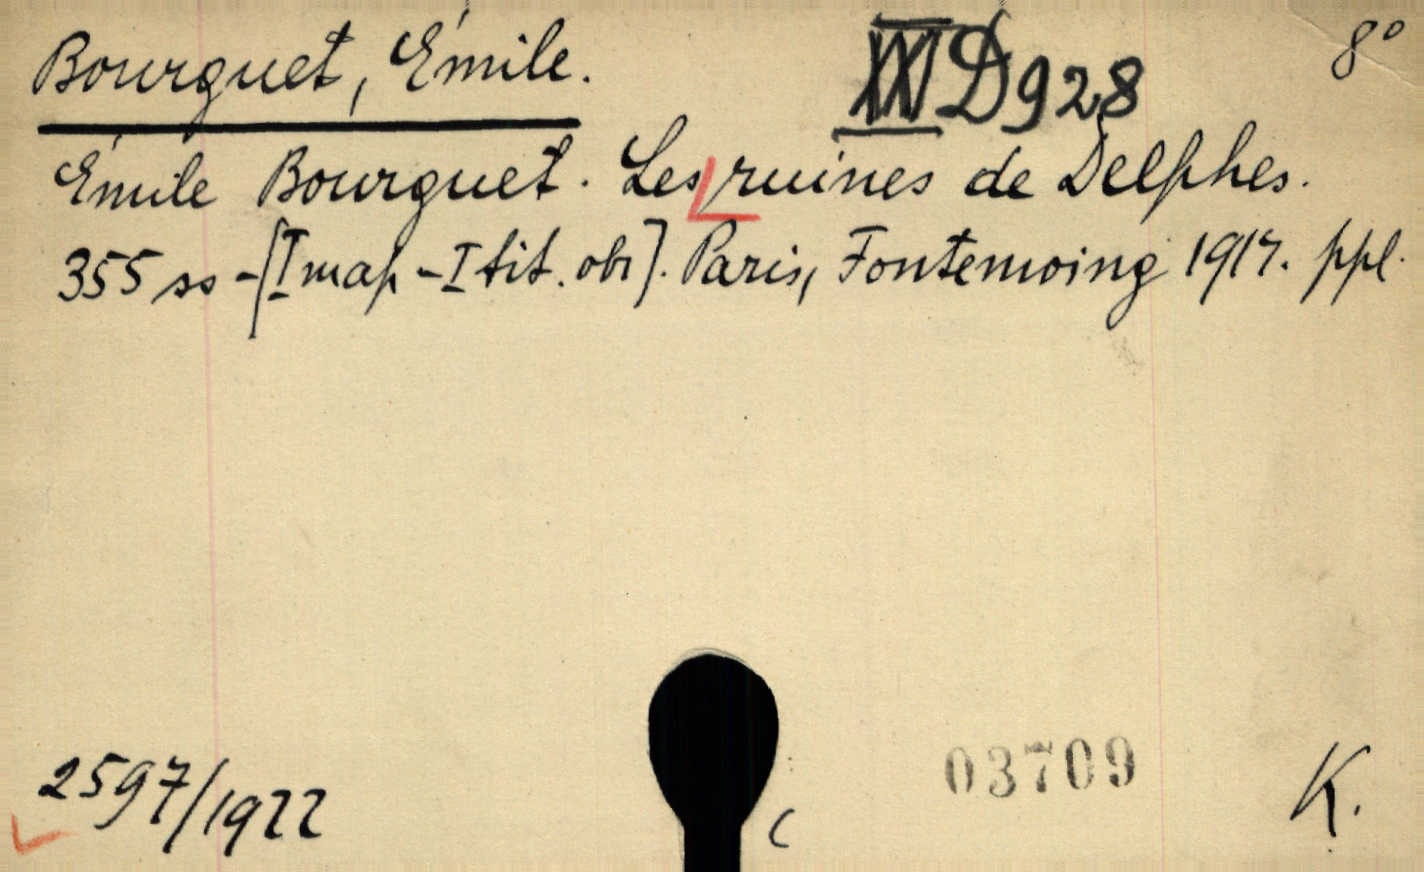 Bourguet, Émile. XXI D 928 8°
Émile Bourguet. Les ruines de Delphes.
355 ss - [I map - I tit. obr]. Paris, Fontemoing 1914. ppl.
2597/1922
03709
K.